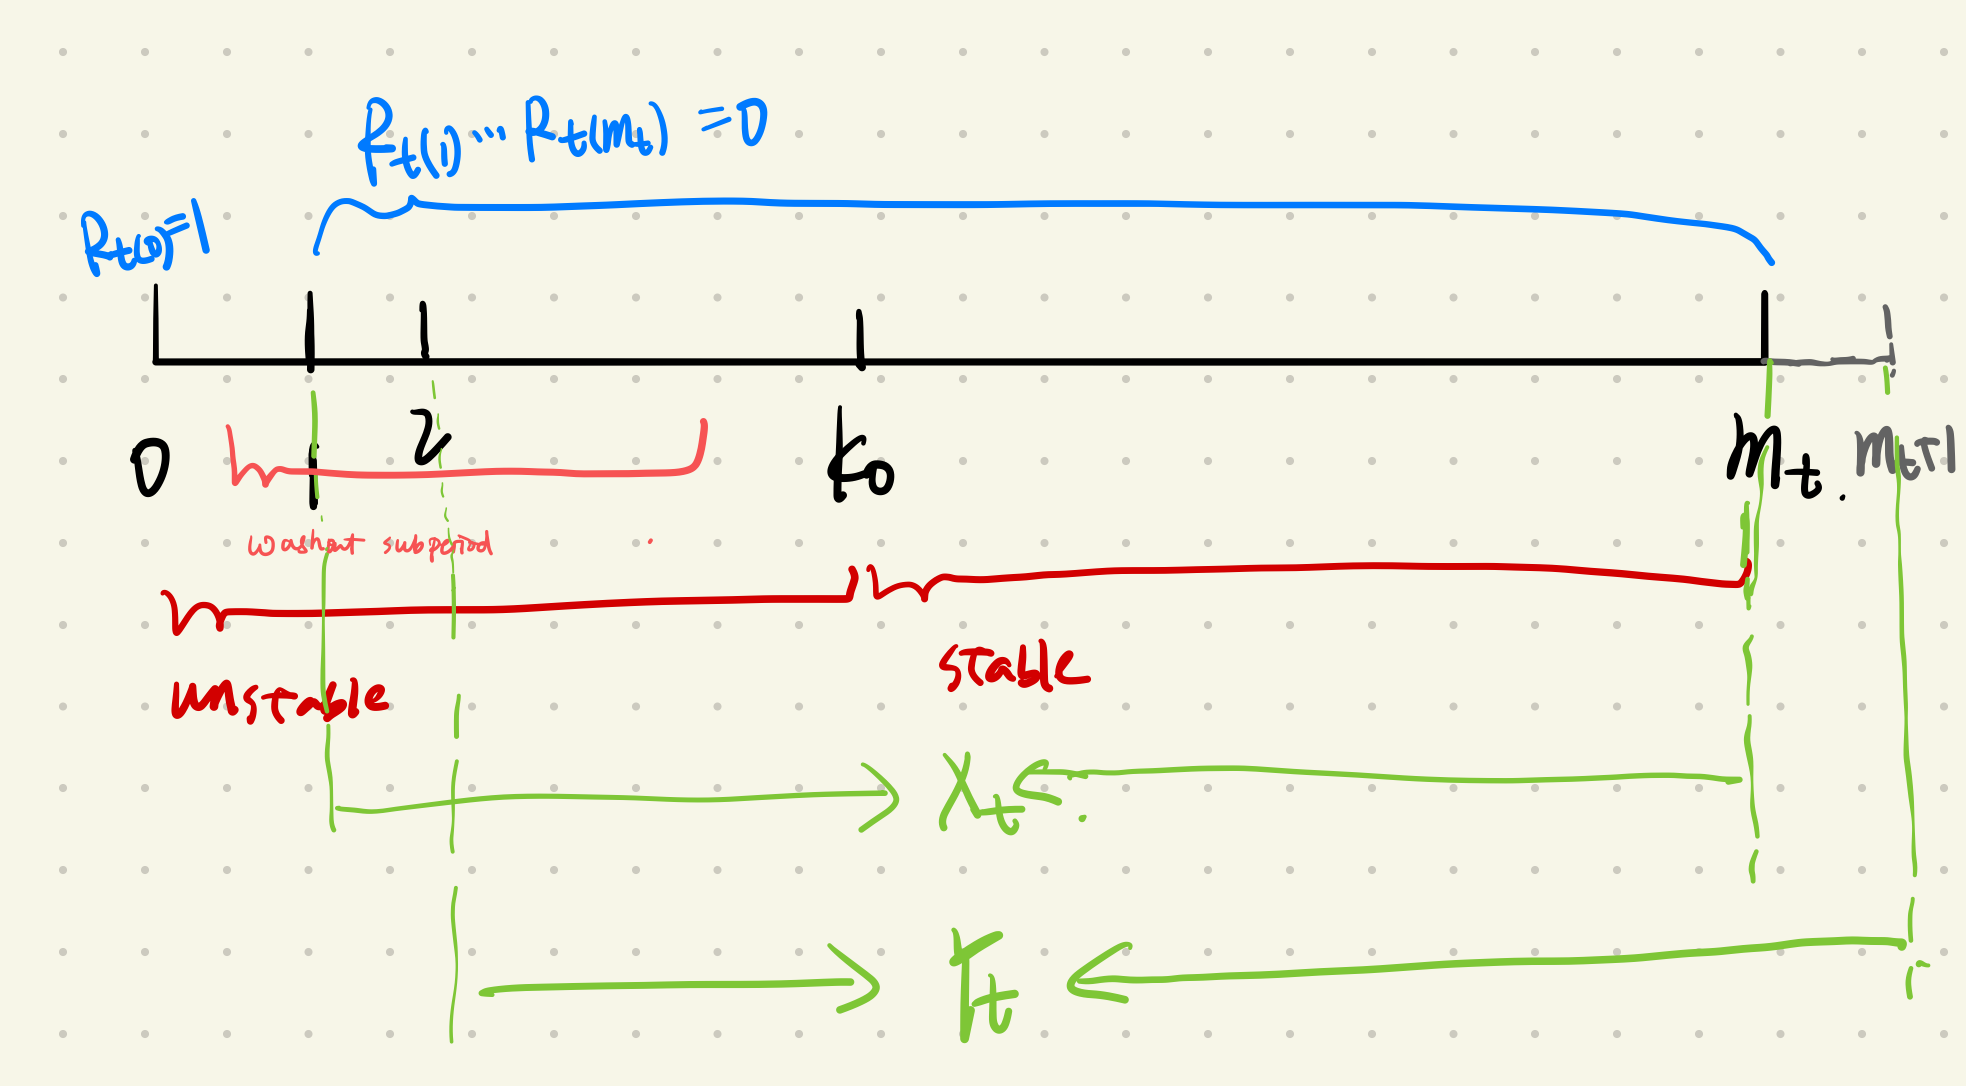 R_t(1) ... R_t(m_t) = 0
R_t(0) = 1
0 1 2 k_0 m_t. m_t+1
washout subperiod
unstable stable
X_t
Y_t